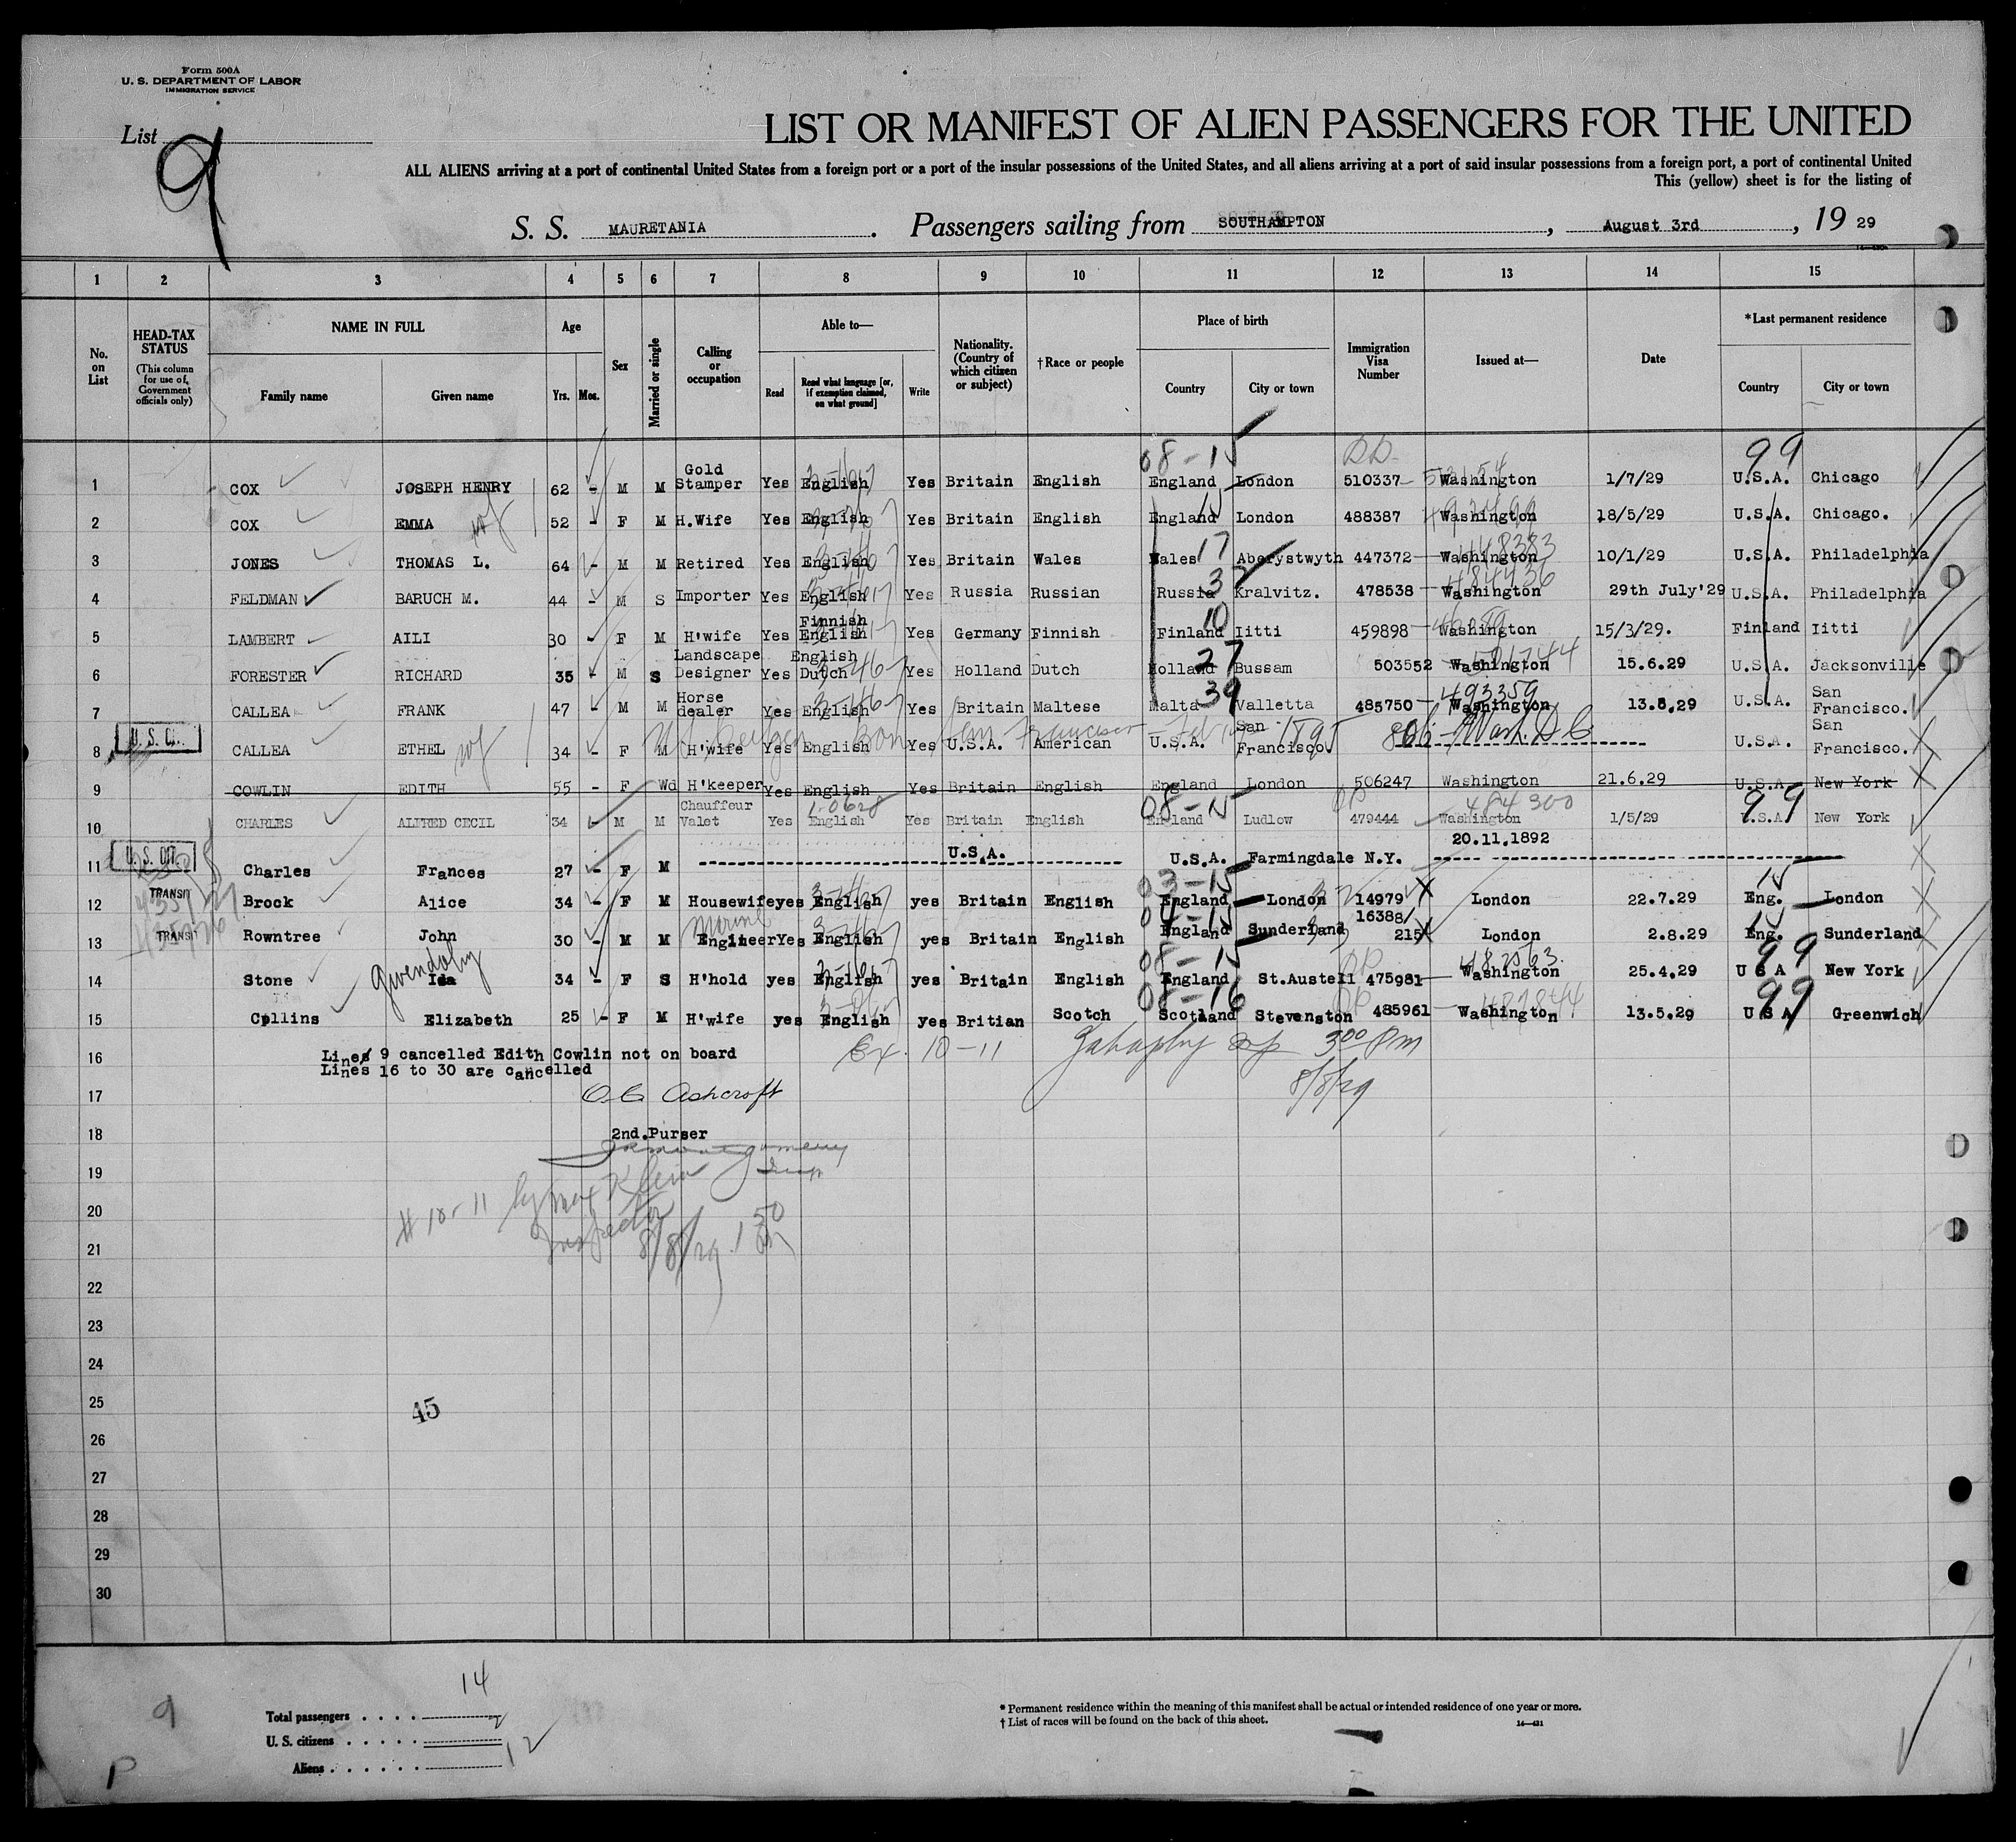 Form 500A
U. S. DEPARTMENT OF LABOR
IMMIGRATION SERVICE
List 9
LIST OR MANIFEST OF ALIEN PASSENGERS FOR THE UNITED
ALL ALIENS arriving at a port of continental United States from a foreign port or a port of the insular possessions of the United States, and all aliens arriving at a port of said insular possessions from a foreign port, a port of continental United
This (yellow) sheet is for the listing of
S. S. MAURETANIA. Passengers sailing from SOUTHAMPTON, August 3rd, 19 29
1 2 3 4 5 6 7 8 9 10 11 12 13 14 15
No. on List
HEAD-TAX STATUS (This column for use of Government officials only)
NAME IN FULL
Family name Given name
Age Yrs. Mos.
Sex
Married or single
Calling or occupation
Able to—
Read Read what language [or, if exemption claimed, on what ground] Write
Nationality. (Country of which citizen or subject)
† Race or people
Place of birth
Country City or town
Immigration Visa Number
Issued at—
Date
* Last permanent residence
Country City or town
08-15 99
1 COX JOSEPH HENRY 62 - M M Gold Stamper Yes English Yes Britain English England London 510337 Washington 1/7/29 U.S.A. Chicago
2 COX EMMA wf 52 - F M H.Wife Yes English Yes Britain English England London 488387 Washington 18/5/29 U.S.A. Chicago.
3 JONES THOMAS L. 64 - M M Retired Yes English Yes Britain Wales Wales 17 Aberystwyth 447372 Washington 448383 10/1/29 U.S.A. Philadelphia
4 FELDMAN BARUCH M. 44 - M S Importer Yes English Yes Russia Russian Russia 3 Kralvitz. 478538 Washington 484436 29th July'29 U.S.A. Philadelphia
5 LAMBERT AILI 30 - F M H'wife Yes Finnish English Yes Germany Finnish Finland 10 Iitti 459898 Washington 15/3/29. Finland Iitti
6 FORESTER RICHARD 35 - M S Landscape Designer Yes English Dutch Yes Holland Dutch Holland 27 Bussam 503552 Washington 15.6.29 U.S.A. Jacksonville
7 CALLEA FRANK 47 - M M Horse dealer Yes English Yes Britain Maltese Malta 39 Valletta 485750 493359 Washington 13.5.29 U.S.A. San Francisco.
U. S. C.
8 CALLEA ETHEL wf 34 - F M H'wife Yes English Yes U.S.A. American U.S.A. San Francisco 1895 Wash. D C U.S.A. San Francisco.
9 COWLIN EDITH 55 - F Wd H'keeper Yes English Yes Britain English England London 506247 Washington 21.6.29 U.S.A. New York
10 CHARLES ALFRED CECIL 34 - M M Chauffeur Valet Yes English Yes Britain English England 08-15 Ludlow 479444 Washington 484300 1/5/29 U.S.A. 99 New York
20.11.1892
U. S. CIT.
11 Charles Frances 27 - F M U.S.A. U.S.A. Farmingdale N.Y.
03-15
12 TRANSIT Brock Alice 34 - F M Housewife yes English yes Britain English England London 14979 London 22.7.29 Eng. London
13 TRANSIT Rowntree John 30 - M M Marine Engineer Yes English yes Britain English England Sunderland 16388/215 London 2.8.29 Eng. Sunderland
08-15
14 Stone Gwendoly Ida 34 - F S H'hold yes English yes Britain English England St.Austell 475981 Washington 482563 25.4.29 U S A 99 New York
08-16
15 Collins Elizabeth 25 - F M H'wife yes English yes Britian Scotch Scotland Stevenston 485961 Washington 487844 13.5.29 U S A 99 Greenwich
16 Lines 9 cancelled Edith Cowlin not on board
Lines 16 to 30 are cancelled
Ex. 10-11 3 00 Pm
8/8/29
17 Ashcroft
18 2nd.Purser
19
20 # 10-11 by Max Klein
Inspector
21 8/8/29 1 50
22
23
24
25 45
26
27
28
29
30
14
Total passengers
U. S. citizens 2
Aliens 12
9
P
* Permanent residence within the meaning of this manifest shall be actual or intended residence of one year or more.
† List of races will be found on the back of this sheet.
14—421